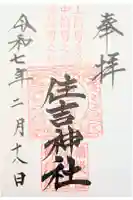 奉拝
住吉神社
令和七年二月十八日